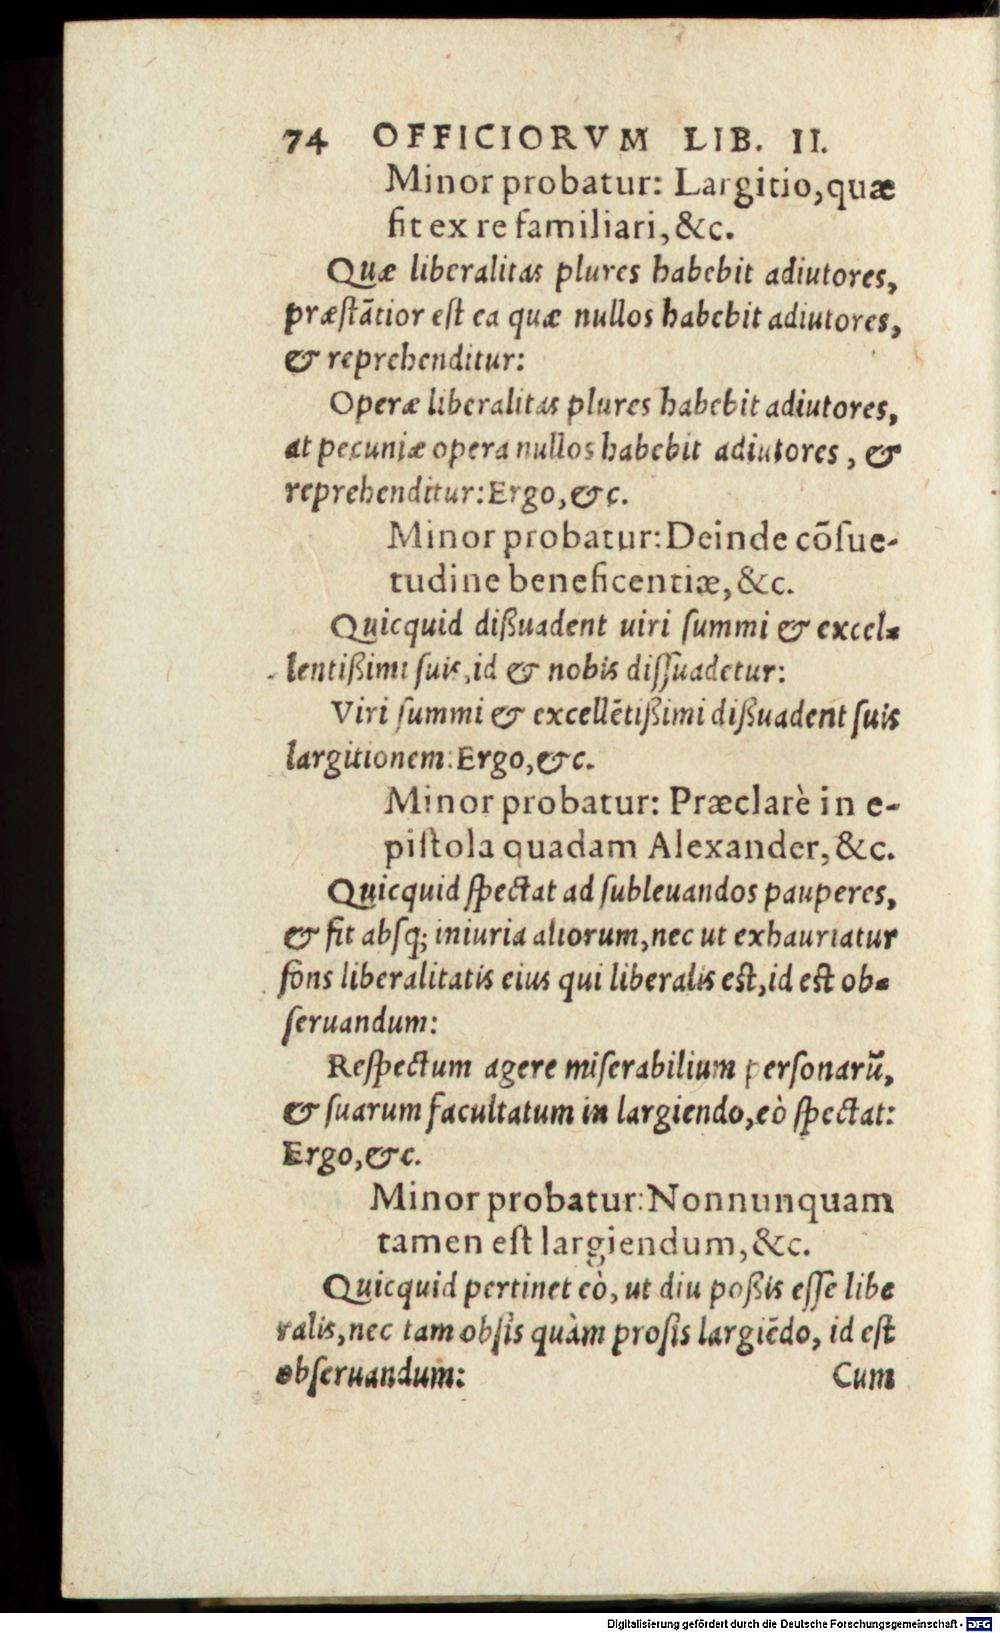 74 OFFICIORVM LIB. II.
Minor probatur: Largitio, quæ
fit ex re familiari, &c.
Quæ liberalitas plures habebit adiutores,
præstãtior est ea quæ nullos habebit adiutores,
& reprehenditur:
Operæ liberalitas plures habebit adiutores,
at pecuniæ opera nullos habebit adiutores, &
reprehenditur: Ergo, &c.
Minor probatur: Deinde cõsue-
tudine beneficentiæ, &c.
Quicquid dißuadent uiri summi & excel-
lentißimi suis, id & nobis dissuadetur:
Viri summi & excellẽtißimi dißuadent suis
largitionem: Ergo, &c.
Minor probatur: Præclarè in e-
pistola quadam Alexander, &c.
Quicquid spectat ad subleuandos pauperes,
& fit absq; iniuria aliorum, nec ut exhauriatur
fons liberalitatis eius qui liberalis est, id est ob-
seruandum:
Respectum agere miserabilium personarũ,
& suarum facultatum in largiendo, eò spectat:
Ergo, &c.
Minor probatur: Nonnunquam
tamen est largiendum, &c.
Quicquid pertinet eò, ut diu poßis esse libe
ralis, nec tam obsis quàm prosis largiẽdo, id est
obseruandum: Cum
Digitalisierung gefördert durch die Deutsche Forschungsgemeinschaft - DFG